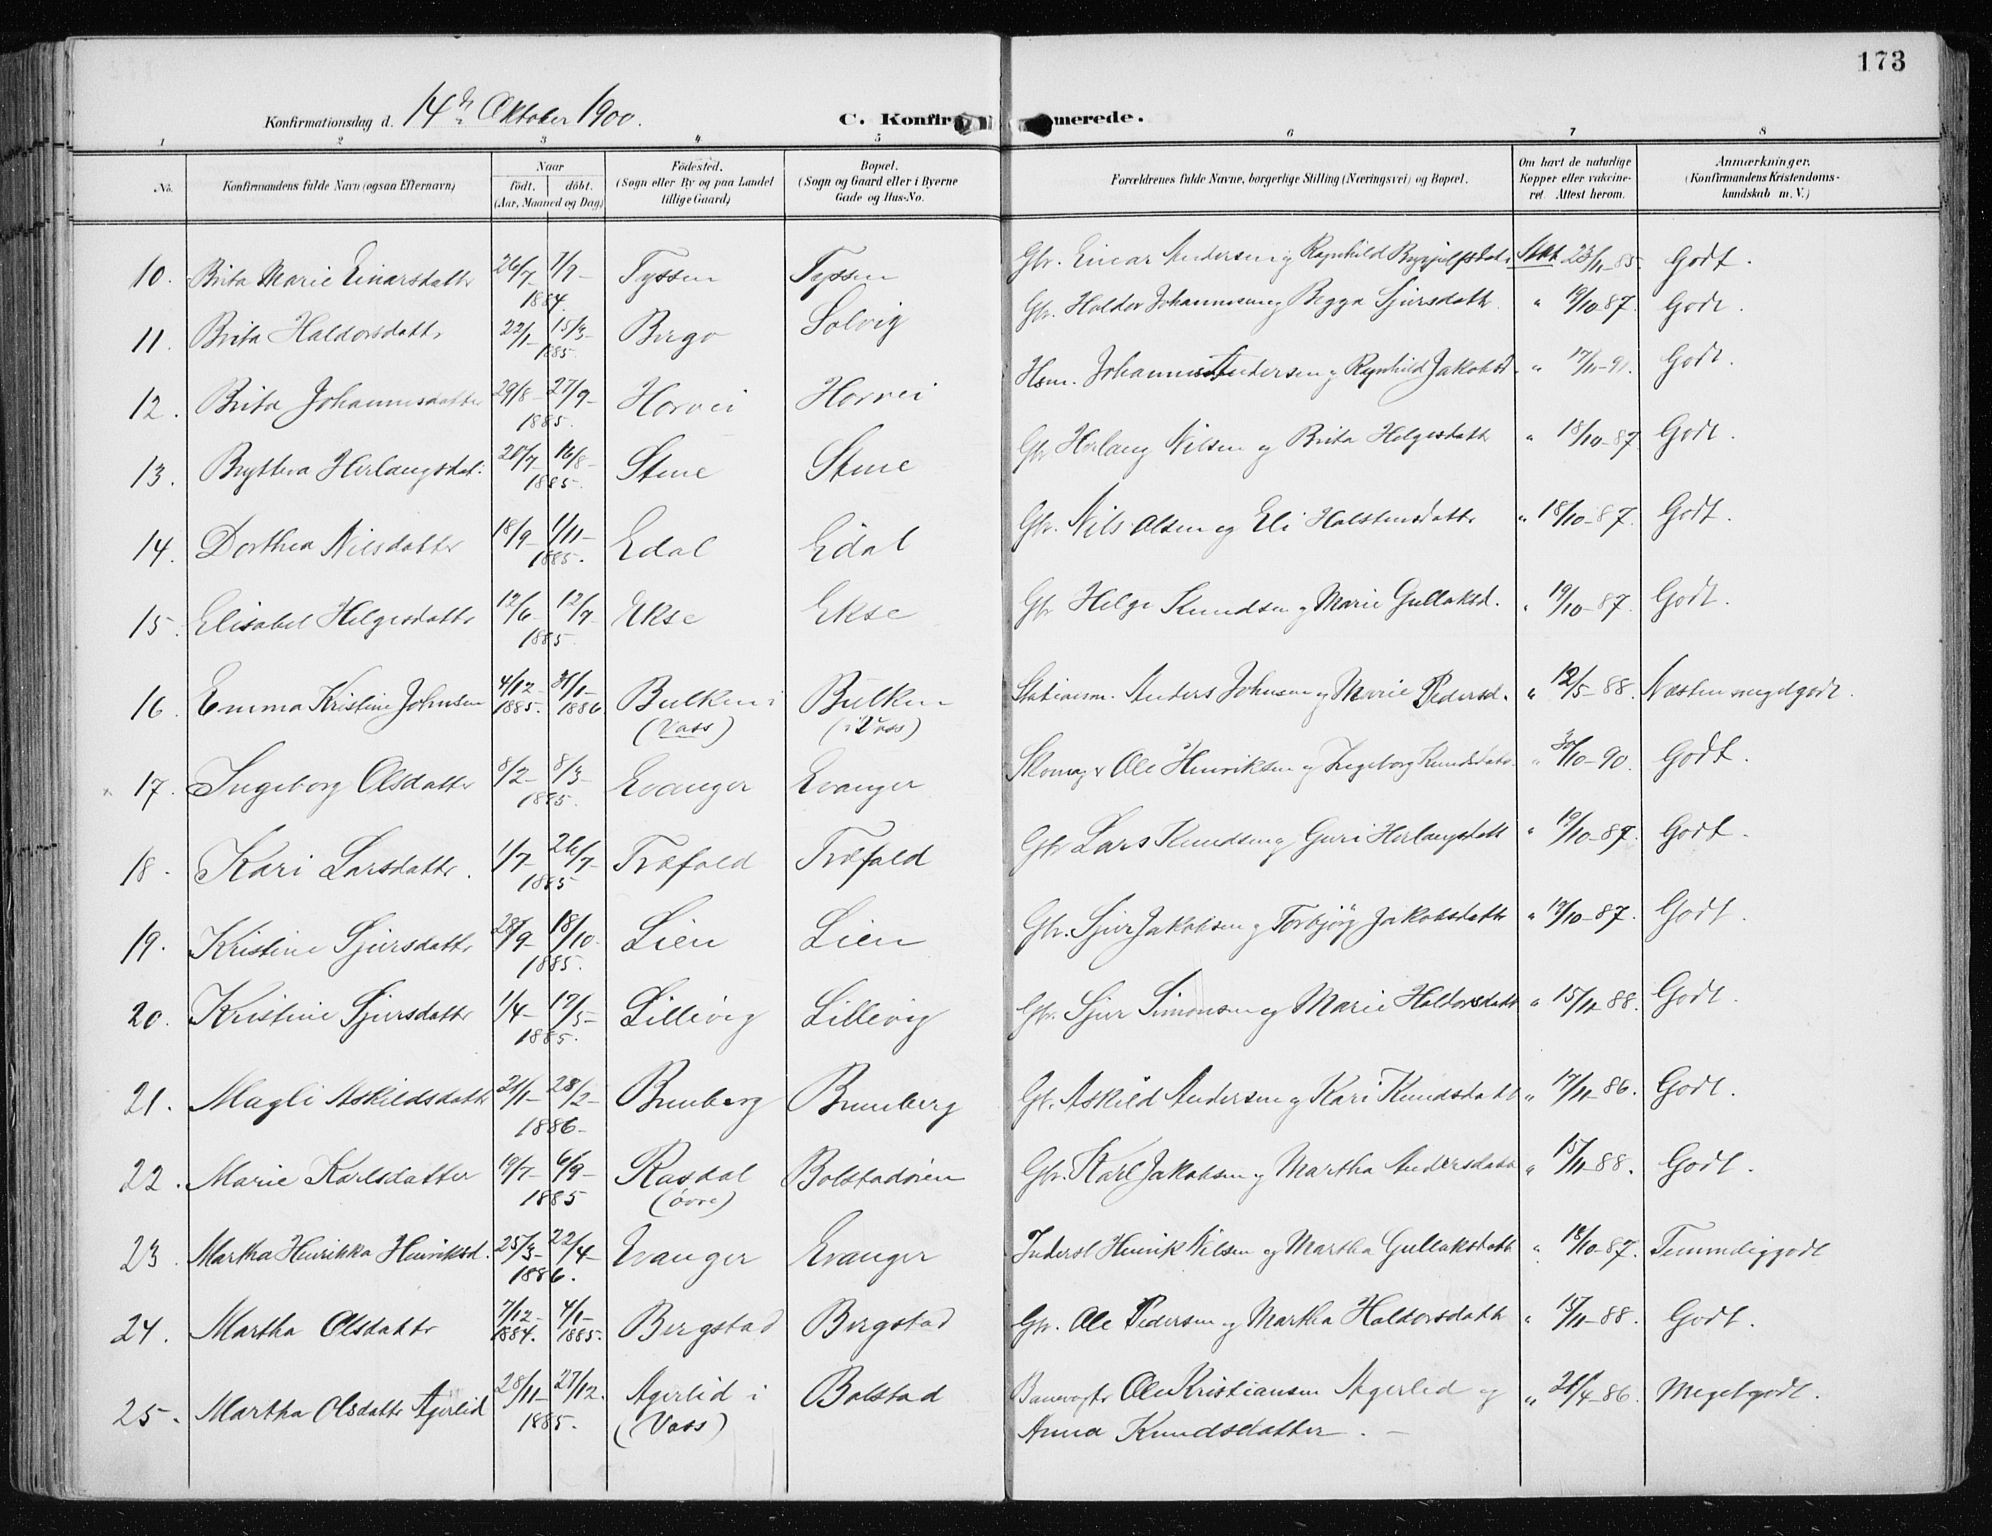 173
Konfirmationsdag d. 14de Oktober 1900. C. Konfirmerede.
1 2 3 4 5 6 7 8
No. Konfirmandens fulde Navn (ogsaa Efternavn) Naar født. døbt. (Aar, Maaned og Dag) Fødested. (Sogn eller By og paa Landet tillige Gaard) Bopæl. (Sogn og Gaard eller i Byerne Gade og Hus-No. Forældrenes fulde Navne, borgerlige Stilling (Næringsvei) og Bopæl. Om havt de naturlige Kopper eller vakcineret. Attest herom. Anmærkninger. (Konfirmandens Kristendomskundskab m. V.)
10. Brita Marie Einarsdatter 26/7 - 7/9 - 1884. Tyssen Tyssen Gbr. Einar Andersen og Ragnhild Att. 23/11-85. Godt.
11. Brita Haldorsdattr 22/1 - 15/3 - 1885. Berge Solvig Gbr. Haldor Johannesen og Begga Sjursdattr " 19/10-87. Godt.
12. Brita Johannesdatter 29/8 - 27/9 - 1885. Horvei Horvei Hsm. Johannes Andersen og Ragnhild Jakobsd. " 17/11-91. Godt.
13. Brytteva Herlaugsdat. 20/7 - 16/8 - 1885. Stene Stene Gbr Herlaug Nilsen og Brita Helgesdattr " 18/10-87 Godt.
14. Dorthea Nilsdatter 18/9 - 1/11 - 1885. Edal Edal Gbr. Nils Olsen og Eli Halstensdattr " 18/10-87. Godt.
15. Elisabet Helgesdattr 12/6 - 12/7 - 1885. Ekse Ekse Gbr Helge Knudsen og Marie Gullaksd. " 19/10-87. Godt.
16. Emma Kristine Johnsen 4/12 - 1885. 31/1 - 1886 Bulken i (Voss) Bulken (i Voss) Stationsm. Anders Johnsen og Marie Pedersd. " 12/5-88. Næsten megetgodt.
17. Ingeborg Olsdatter 8/2 - 8/3 - 1885. Evanger Evanger Skomagr Ole Henriksen og Ingeborg Knudsdatr. " 30/10-90. Godt.
18. Kari Larsdatter. 1/7 - 26/7 - 1885 Træfald Træfald Gbr Lars Knudsen og Guri Herlaugsdatt " 19/10-87. Godt.
19. Kristine Sjursdatter 28/9 - 18/10. 1885. Lien Lien Gbr. Sjur Jakobsen og Torbjørg Jakobsdattr " 19/10-87. Godt.
20. Kristine Sjursdatter 1/4 - 17/5 - 1885. Lillevig Lillevig Gbr. Sjur Simonsen og Marie Haldorsdattr " 15/11-88. Godt.
21. Magli Askildsdattr 21/1 - 28/2 - 1886 - Brunberg Brunberg Gb. Askild Andersen og Kari Knudsdatt " 17/11-86. Godt.
22. Marie Karlsdatter 19/7 - 6/9 - 1885 Rasdal (øvre) Bolstadøren Gbr. Karl Jakobsen og Martha Andersdatr " 15/11-88. Godt.
23. Martha Henrikka Henriksd. 25/3 - 22/4 - 1886. Evanger Evanger Inderst Henrik Nilsen og Martha Gullaksdatt " 18/10-87. Temmeliggodt
24. Martha Olsdattr 7/12 - 1884. 4/1 - 1885. Bergstad Bergstad Gbr. Ole Pedersen og Martha Haldorsdattr " 15/11-88. Godt.
25. Martha Olsdattr Agerlid 28/11 - 27/12. 1885. Agerlid i (Voss) Bolstad Banevogtr Ole Kristiansen Agerlid og Anna Knudsdatter. - " 21/4-86. Megetgodt.